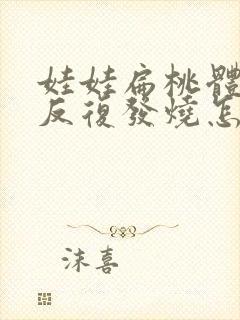 娃娃扁桃體
反復發燒怎
沫喜